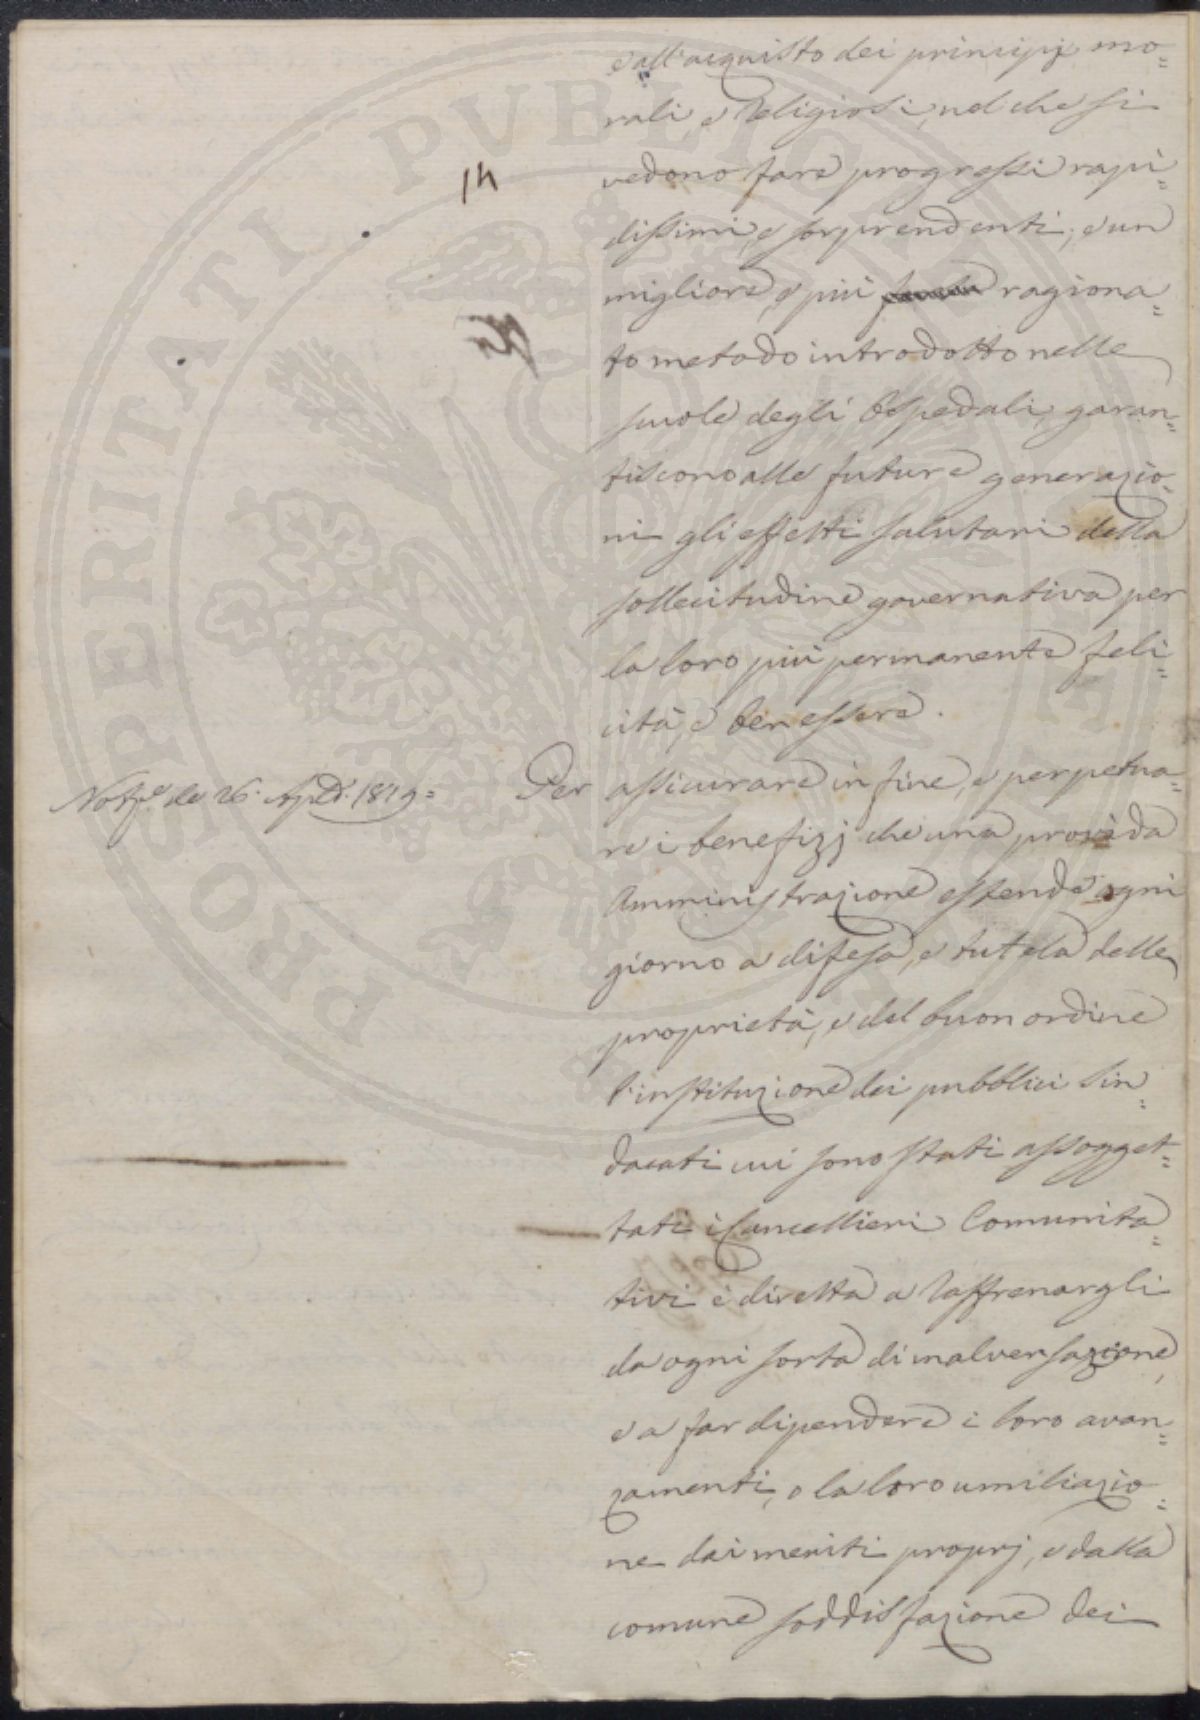 e all'acquisto dei principj mo=
rali, e Religiosi, nel che si
vedono fare progressi rapi=
14
dissimi, e sorprendenti; e un
migliore, e più ragiona=
to metodo introdotto nelle
scuole degli Ospedali, garan=
tiscono alle future generazio=
ni gli effetti salutari della
sollecitudine governativa per
la loro più permanente feli=
cità, e ben essere.
Notif.e de 26. 1819=
Per assicurare in fine, e perpetua=
re i benefizj che una provida
Amministrazione estende ogni
giorno a difesa, e tutela delle
proprietà, e del buon ordine
l'instituzione dei pubblici Sin=
dacati cui sono stati assogget=
tati i Cancellieri Comunita=
tivi è diretta a raffrenargli
da ogni sorta di malversazione,
e a far dipendere i loro avan=
zamenti, o la loro umiliazio=
ne dai meriti proprj, e dalla
comune soddisfazione dei
PROSPERITATI PVBLICAE